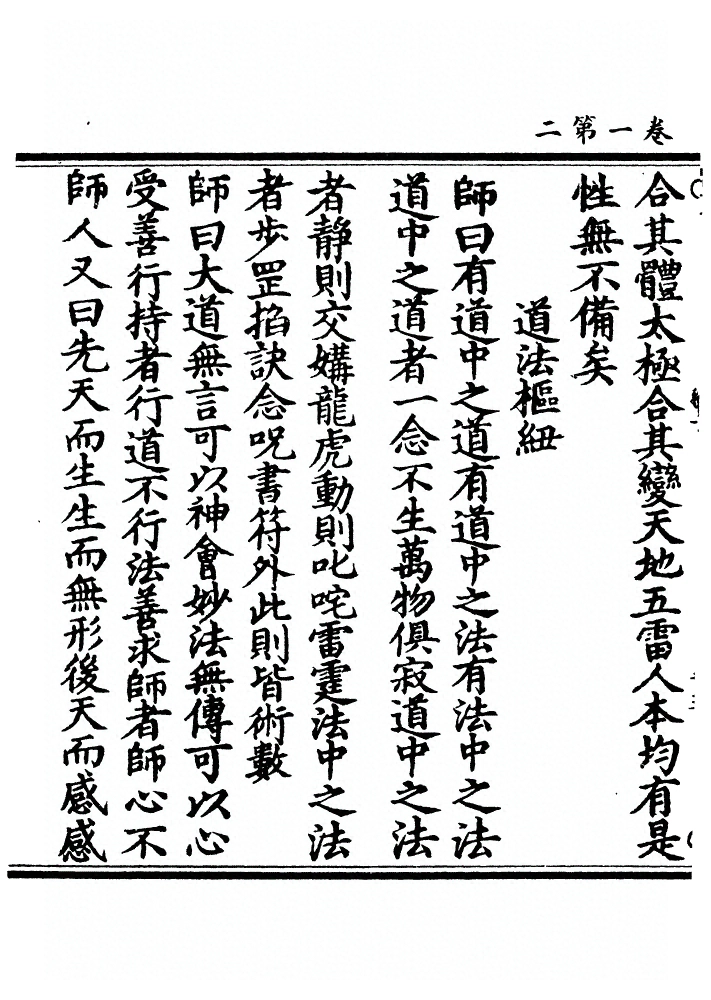 卷一第二
合其體太極合其變天地五雷人本均有是
性無不備矣
道法樞紐
師曰有道中之道有道中之法有法中之法
道中之道者一念不生萬物俱寂道中之法
者靜則交媾龍虎動則叱咤雷霆法中之法
者步罡掐訣念咒書符外此則皆術數
師曰大道無言可以神會妙法無傳可以心
受善行持者行道不行法善求師者師心不
師人又曰先天而生生而無形後天而感感